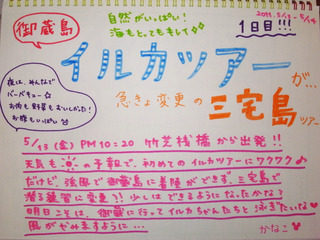 御蔵島
自然がいっぱい!
海もとてもキレイ
2011.5/13~5/14
1日目!!!
イルカツアーが...
急きょ変更の 三宅島ツアー
夜は、みんなで
バーベキュー☆
お肉も野菜もおいしかった!
お腹もいっぱい
5/13 (金) PM10:20 竹芝桟橋から出発!!
天気も の予報で、初めてのイルカツアーにワクワク♪
だけど、強風で御蔵島に着岸ができず、三宅島で
潜る練習に変更?! 少しはできるようになったかな?
明日こそは、御蔵に行ってイルカちゃんたちと泳ぎたいな♥
風がやみますように…
かなこ